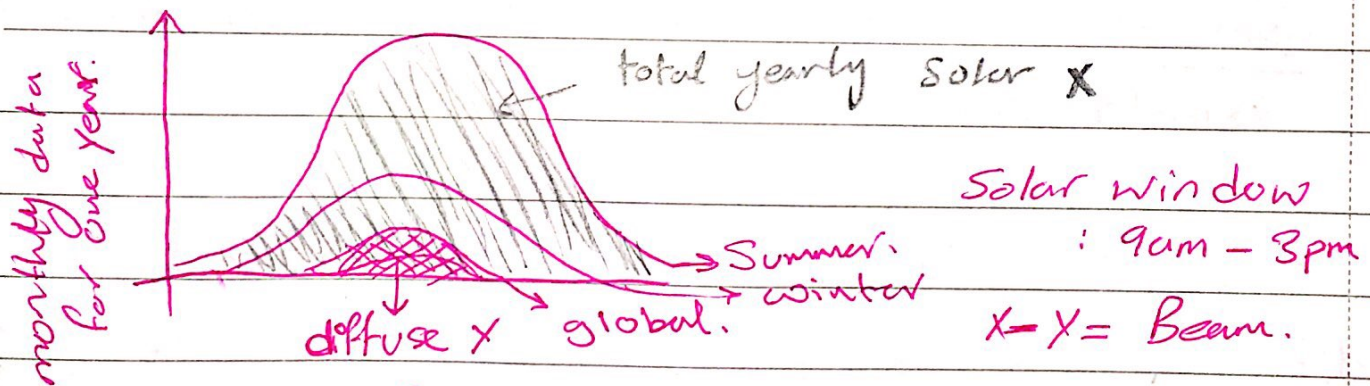 monthly data
for one year.
total yearly Solar X
Solar window
: 9am - 3pm
Summer.
winter
diffuse Y
global.
X-Y = Beam.